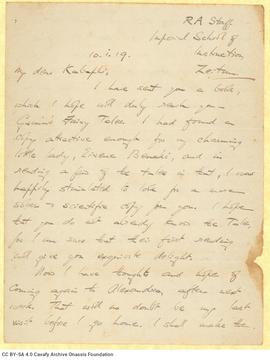 RA Staff
Imperial School of
Instruction
Zeitoun
10.i.19.
My dear
I have sent you a book,
which I hope will duly reach you —
Grimm's Fairy Tales. I had found a
copy attractive enough for my charming
little lady, and in
reading a few of the tales in that, I was
happily stimulated to look for a more
& scientific copy for you. I hope
that you do not already know the Tales,
for I am sure that their first reading
will give you exquisite delight.
Now I have thoughts and hope of
coming again to Alexandria, after next
week. That will no doubt be my last
visit before I go home. I shall make the
CC BY-SA 4.0 Cavafy Archive Onassis Foundation